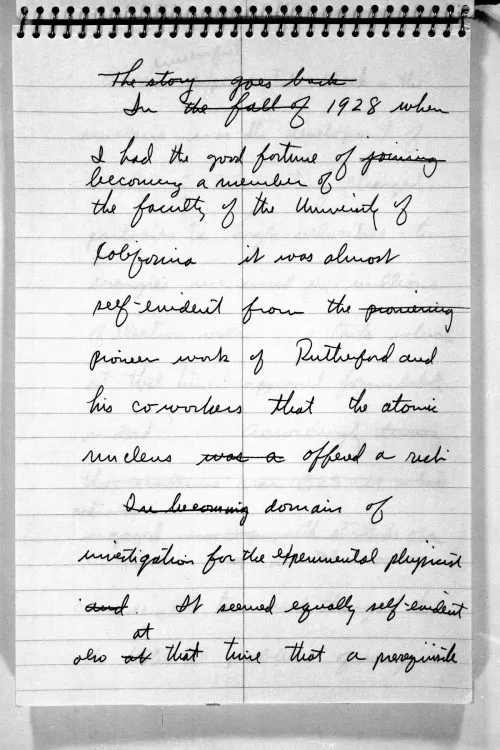 The story goes back
In the fall of 1928 when
I had the good fortune of joining
becoming a member of
the faculty of the University of
California it was almost
self-evident from the pioneering
pioneer work of Rutherford and
his coworkers that the atomic
nucleus was a offered a rich
In becoming domain of
investigation for the experimental physicist
and. It seemed equally self-evident
at
also at that time that a prerequisite